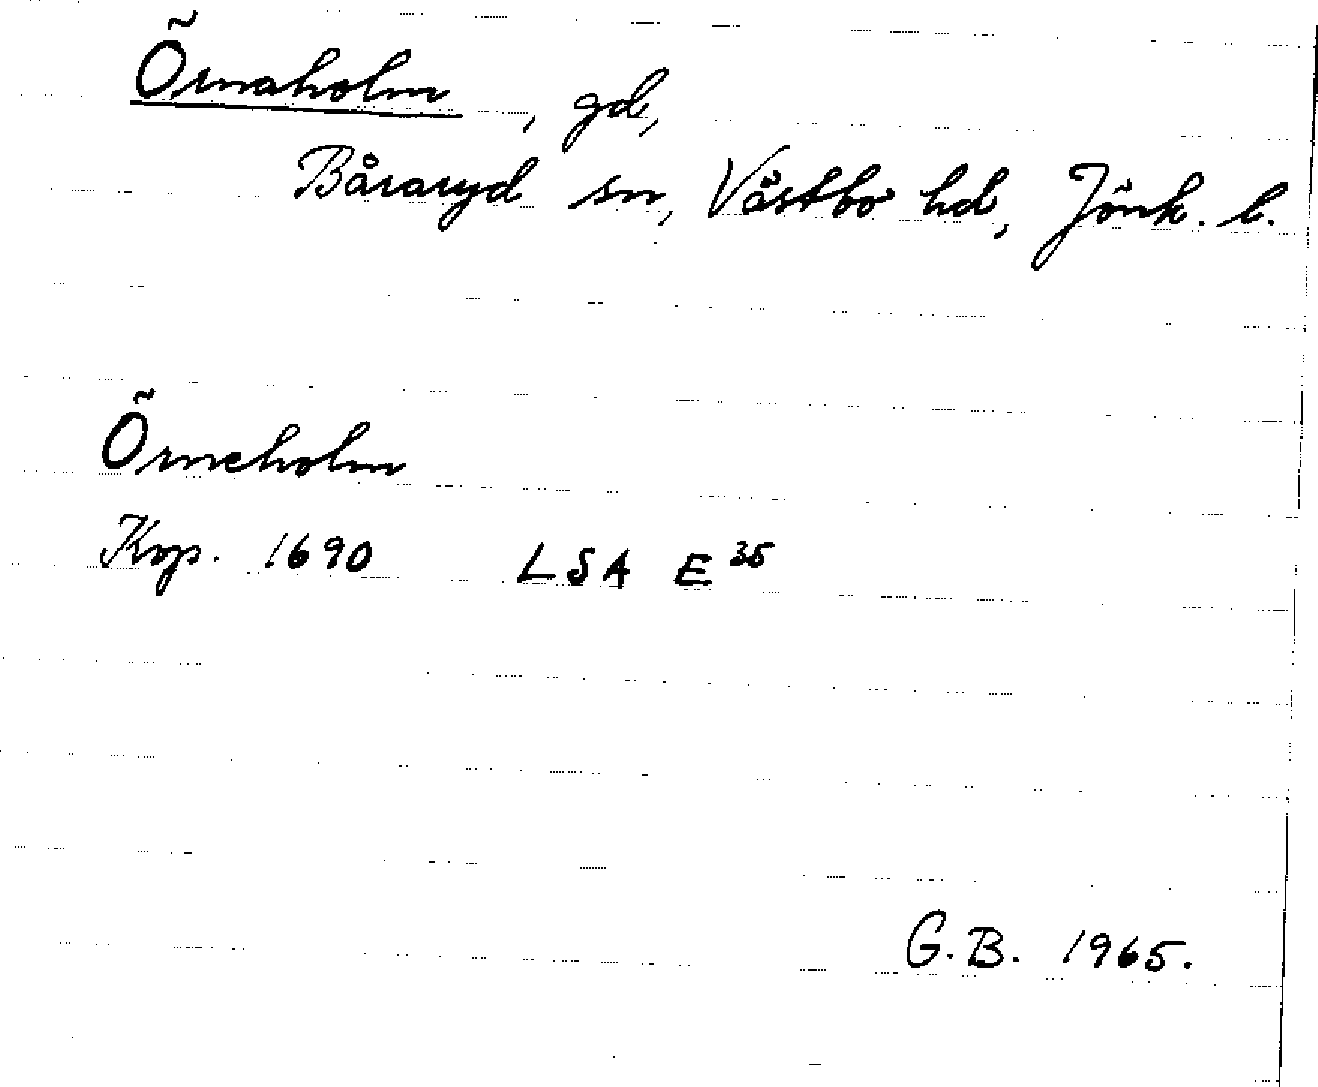 Örnaholm, gd,
Båraryd sn, Västbo hd, Jönk. l.
Örneholm
Kop. 1690 LSA E 35
G.B. 1965.